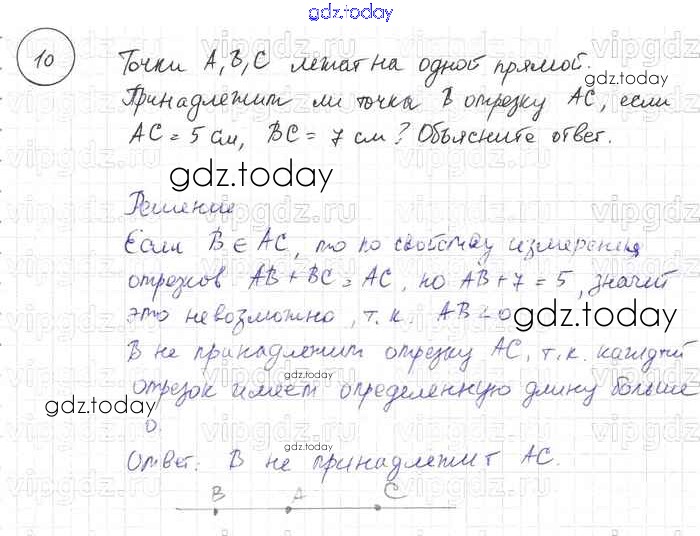 gdz.today
10
Точки А, В, С лежат на одной прямой.
gdz.today
Принадлежит ли точка В отрезку АС, если
АС = 5 см, ВС = 7 см? Объясните ответ.
gdz.today
Решение
Если В ∈ АС, то по свойству измерения
отрезков АВ + ВС = АС, но АВ + 7 = 5, значит
gdz.today
это невозможно, т.к. АВ < 0
gdz.today
В не принадлежит отрезку АС, т.к. каждый
gdz.today
отрезок имеет определенную длину больше
gdz.today
0.
gdz.today
Ответ: В не принадлежит АС.
В А С
vipgdz.ru